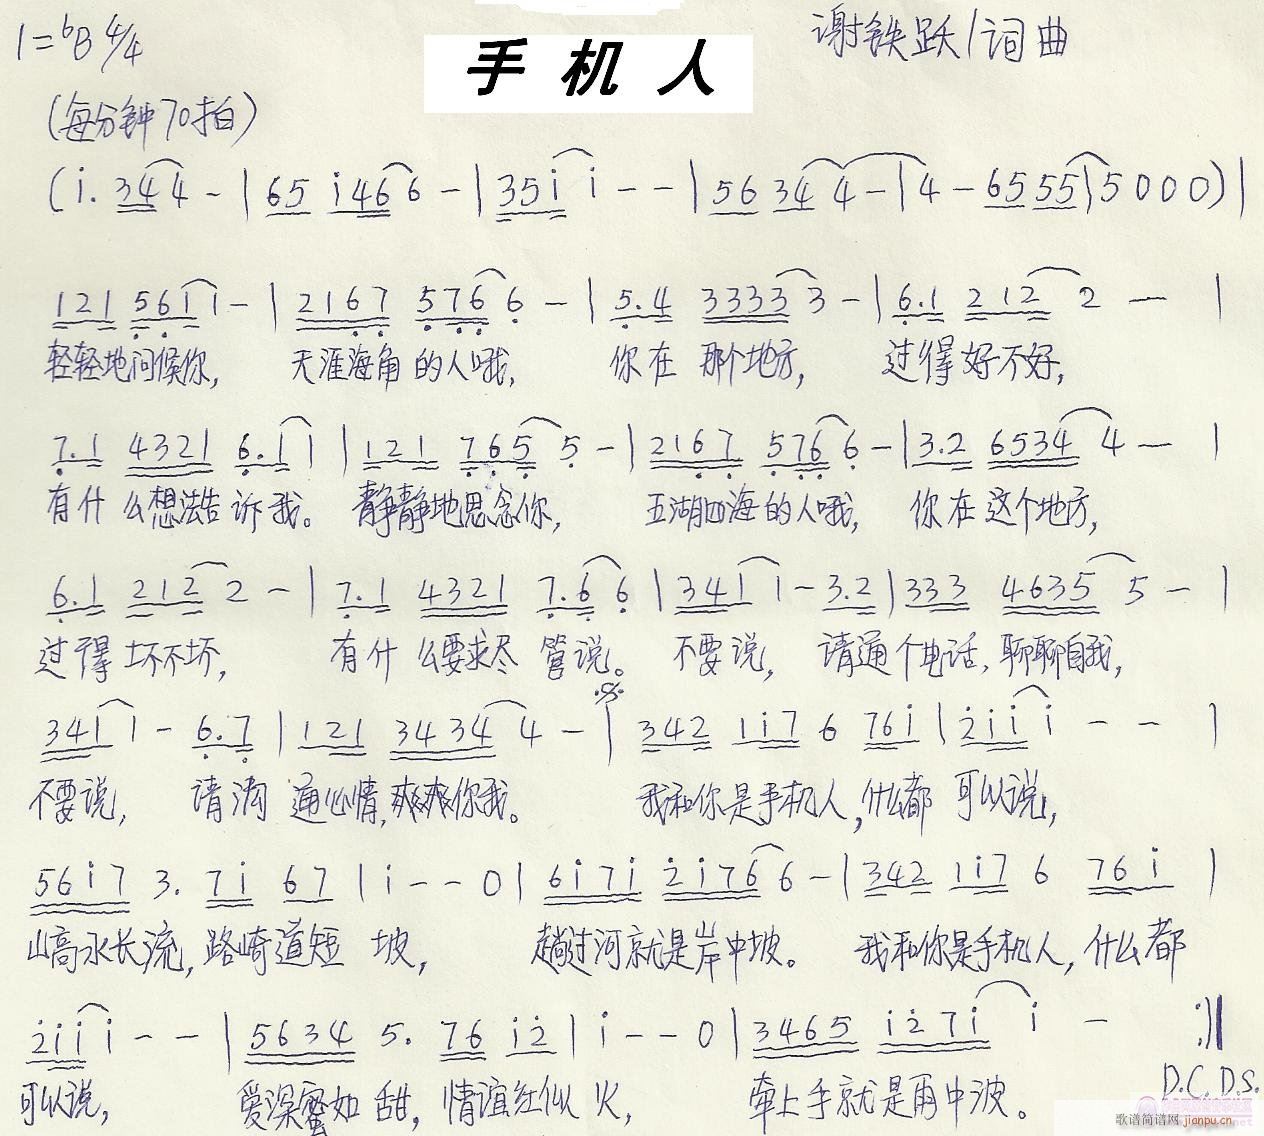 1=♭B 4/4 手机人 谢铁跃/词曲
(每分钟70拍)
(i. 34 4 - | 65 i46 6 - | 35i i - - | 56 34 4 - | 4 - 65 55 | 5 0 0 0) |
121 5611 - | 2167 576 6 - | 5.4 3333 3 - | 6.1 212 2 - |
轻轻地问候你, 天涯海角的人哦, 你在那个地方, 过得好不好,
7.1 4321 6.1 1 | 121 765 5 - | 2167 576 6 - | 3.2 6534 4 - |
有什么想法告诉我。 静静地思念你, 五湖四海的人哦, 你在这个地方,
6.1 212 2 - | 7.1 4321 7.6 6 | 341 1 - 3.2 | 333 4635 5 - |
过得坏不坏, 有什么要求尽管说。 不要说, 请通个电话, 聊聊自我,
341 1 - 6.7 | 121 3434 4 - | 342 1i7 6 76i | 2ii i - - |
不要说, 请沟通心情,爽爽你我。 我和你是手机人,什么都可以说,
56i7 3. 7i 67 | i - - 0 | 6i7i 2i76 6 - | 342 1i7 6 76i |
山高水长流,路崎道短坡, 趟过河就是岸中坡。 我和你是手机人,什么都
2ii i - - | 5634 5. 76 i2 | i - - 0 | 3465 i27i i - :||
可以说, 爱深蜜如甜,情谊红似火, 牵上手就是雨中波。
D.C. D.S.
歌谱简谱网 jianpu.cn